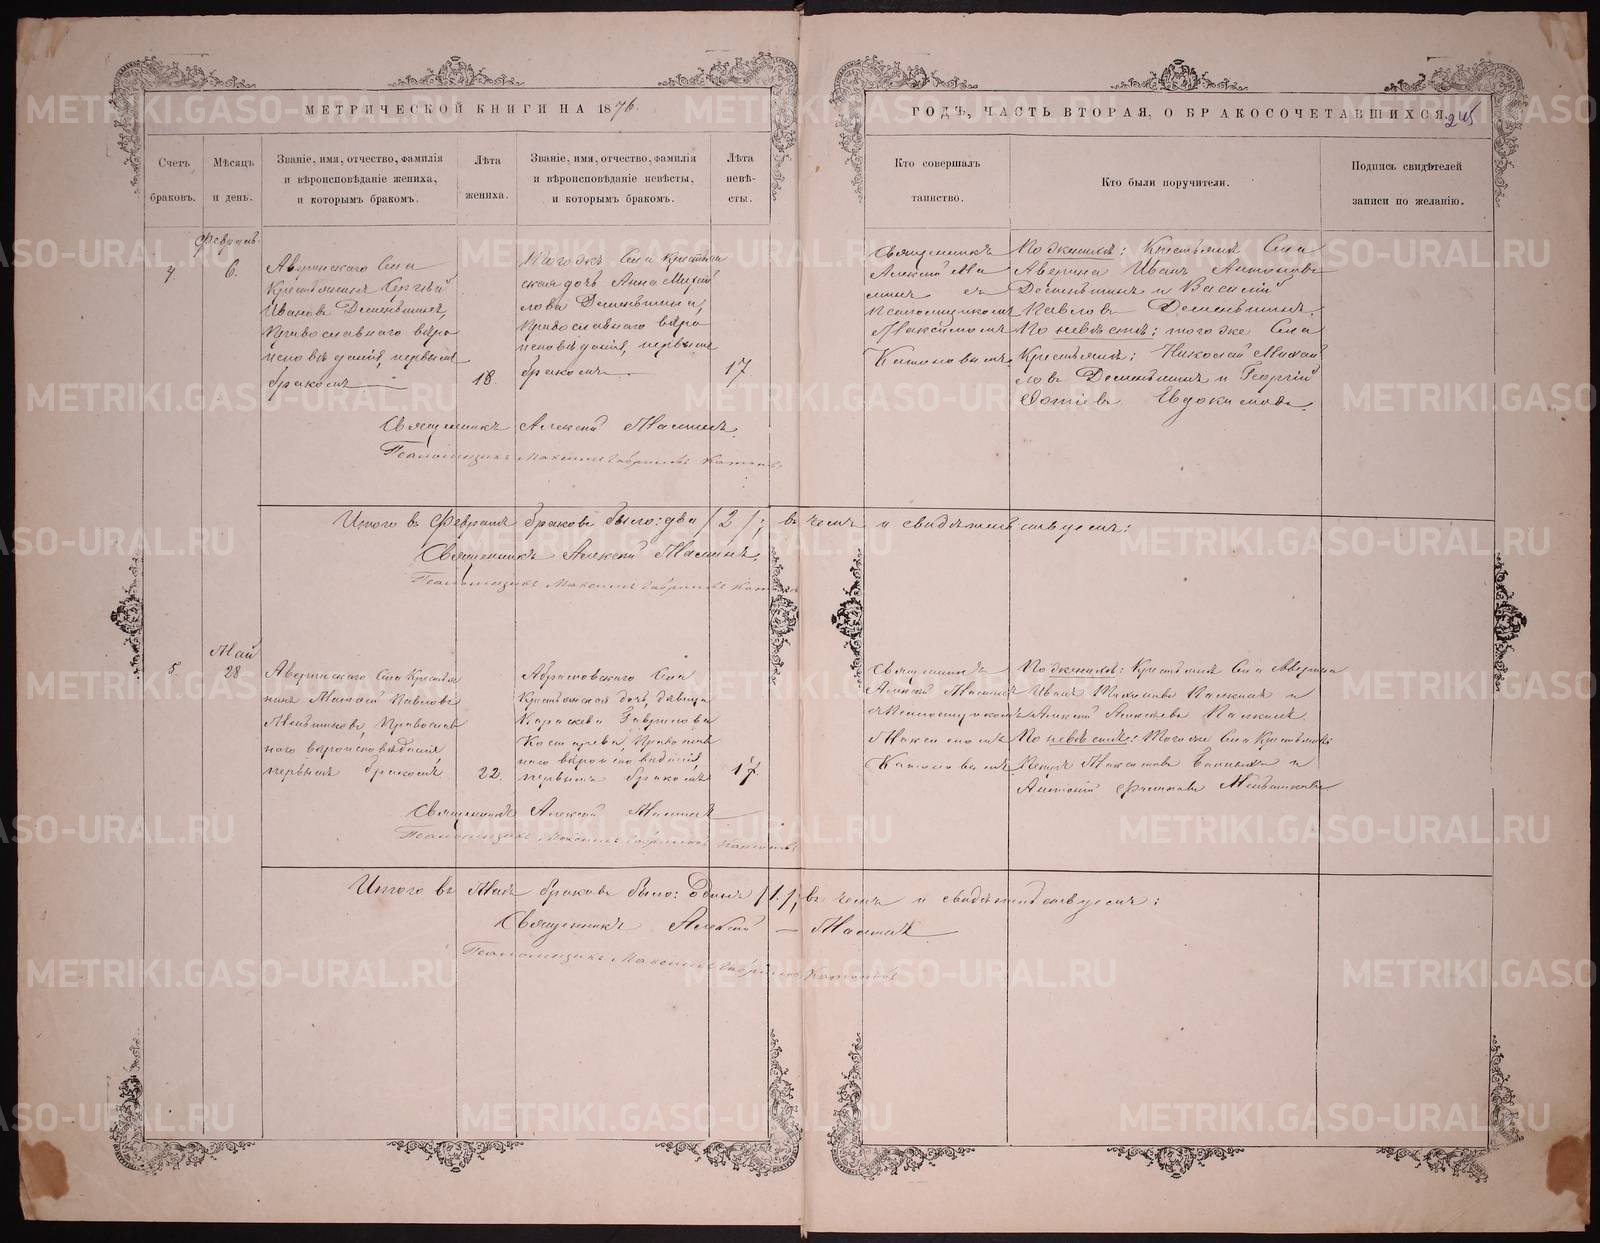 МЕТРИЧЕСКОЙ КНИГИ НА 1876.
ГОДЪ, ЧАСТЬ ВТОРАЯ, О БРАКОСОЧЕТАВШИХСЯ.
245
Счетъ
браковъ.
Мѣсяцъ
и день.
Званіе, имя, отчество, фамилія
и вѣроисповѣданіе жениха,
и которымъ бракомъ.
Лѣта
жениха.
Званіе, имя, отчество, фамилія
и вѣроисповѣданіе невѣсты,
и которымъ бракомъ.
Лѣта
невѣ-
сты.
Кто совершалъ
таинство.
Кто были поручители.
Подпись свидѣтелей
записи по желанію.
Февраль
4.
6.
Аверинского Села
Крестьянинъ Сергѣй
Ивановъ Деменьшинъ,
Православнаго вѣро
исповѣданія, первымъ
бракомъ
18.
Тогожъ Села Крестьян
ская дочь Анна Михай
лова Деменьшина,
Православнаго вѣро
исповѣданія, первымъ
бракомъ
17.
Священникъ
Алексѣй Ма
минъ съ
Псаломщикомъ
Максимомъ
Катановымъ.
По женихѣ: Крестьяне Села
Аверина Иванъ Антоновъ
Деменьшинъ и Василій
Павловъ Деменьшинъ.
По невѣстѣ: тогоже Села
Крестьяне: Николай Михай
ловъ Деменьшинъ и Георгій
Фотіевъ Евдокимовъ.
Священникъ Алексѣй Маминъ.
Псаломщикъ Максимъ Гавриловъ Катановъ
Итого въ Февралѣ браковъ было: два /2/; въ чемъ и свидѣтельствуемъ:
Священникъ Алексѣй Маминъ.
Псаломщикъ Максимъ Гавриловъ Катановъ
Май
5
28
Аверинского Села Крестья
нинъ Матѳей Павловъ
Меньшиковъ, Православ
наго вѣроисповѣданія
первымъ бракомъ
22.
Абрамовского Села
Крестьянской дочь, дѣвица
Параскева Гаврилова
Костарева, Православ
наго вѣроисповѣданія,
первымъ бракомъ
17.
Священникъ
Алексѣй Маминъ
съ Псаломщикомъ
Максимомъ
Катановымъ
По женихѣ: Крестьяне Села Аверина
Иванъ Палкинъ и
Алексѣй Алексѣевъ Палкинъ.
По невѣстѣ: Тогоже Села Крестьяне:
Петръ и
Антоній Меньшиковъ
Священникъ Алексѣй Маминъ
Псаломщикъ Максимъ Гавриловъ Катановъ
Итого въ Маѣ браковъ было: Одинъ /1./, въ чемъ и свидѣтельствуемъ:
Священникъ Алексѣй — Маминъ
Псаломщикъ Максимъ Гавриловъ Катановъ
METRIKI.GASO-URAL.RU